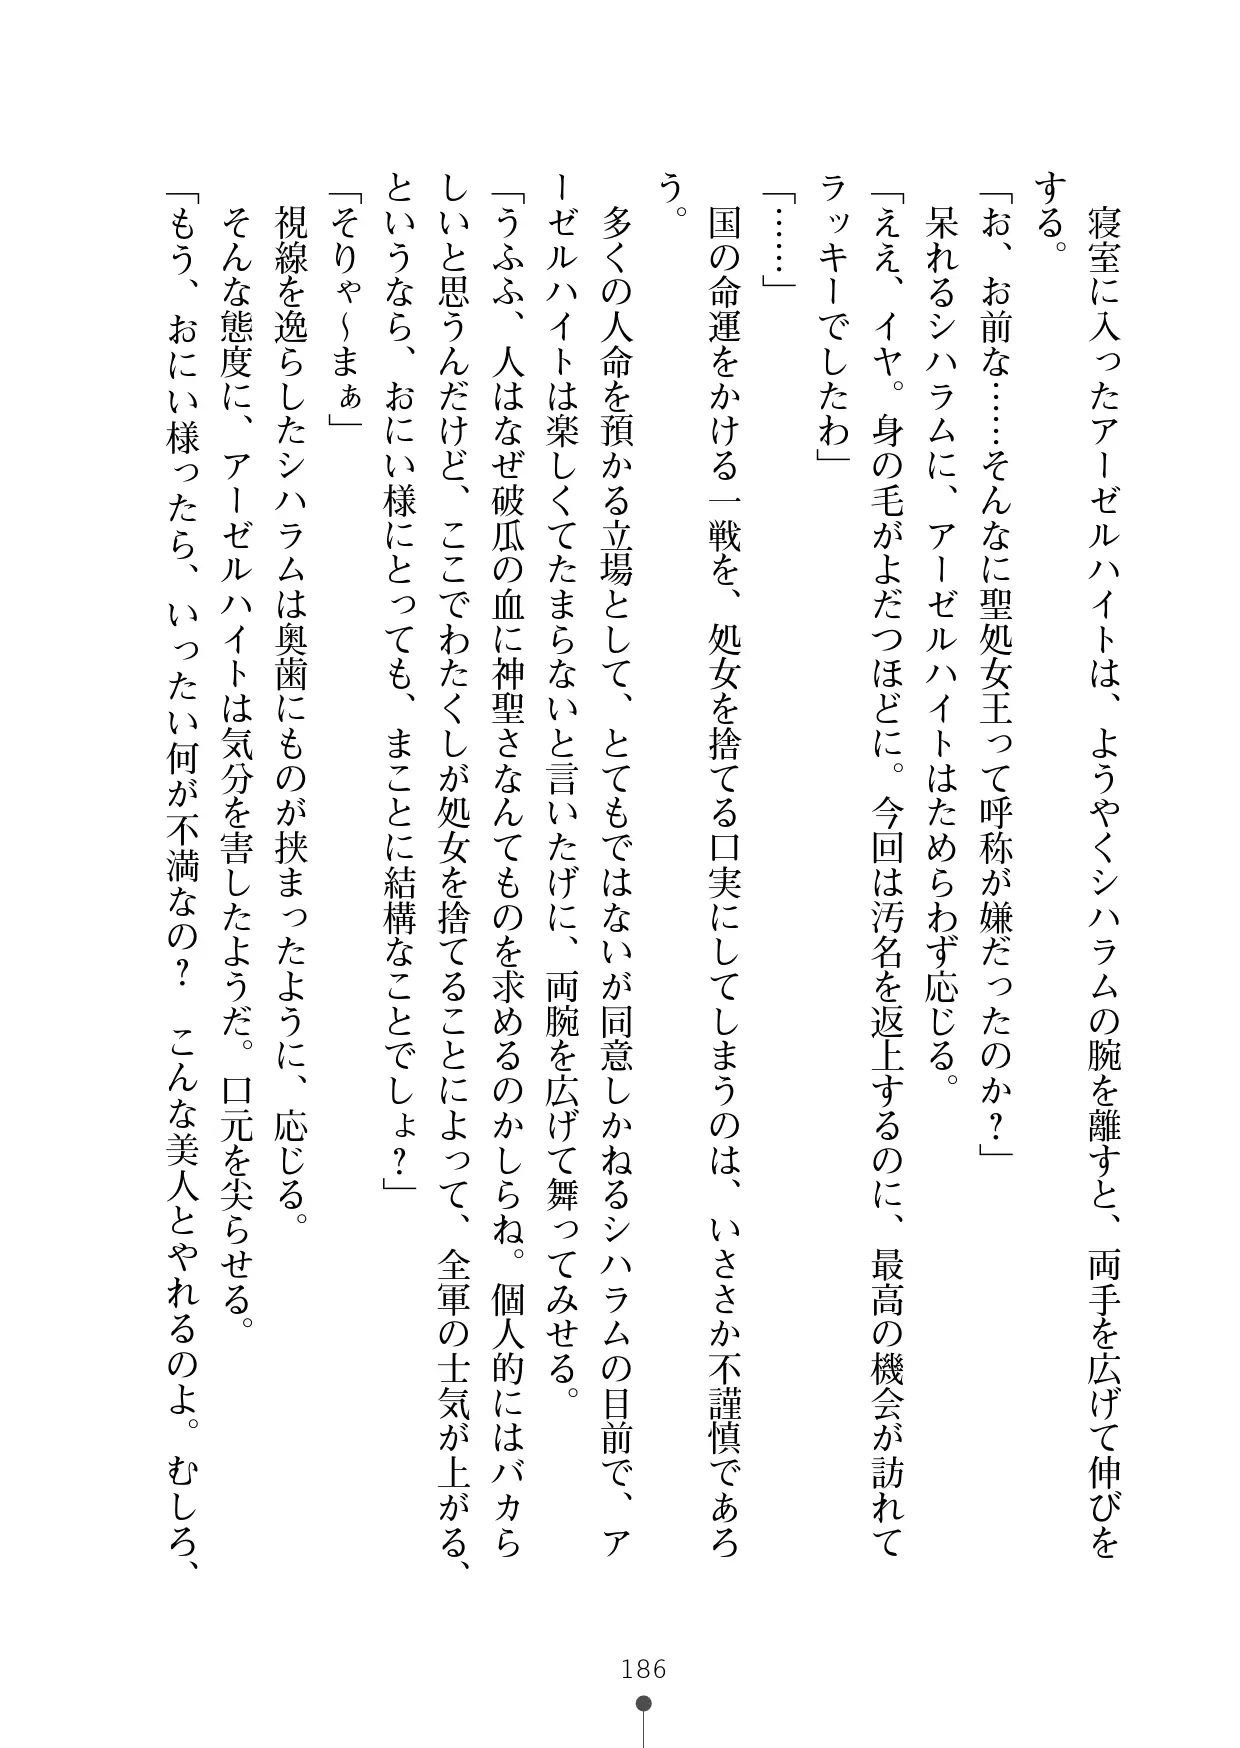 寝室に入ったアーゼルハイトは、ようやくシハラムの腕を離すと、両手を広げて伸びを
する。
「お、お前な……そんなに聖処女王って呼称が嫌だったのか？」
　呆れるシハラムに、アーゼルハイトはためらわず応じる。
「ええ、イヤ。身の毛がよだつほどに。今回は汚名を返上するのに、最高の機会が訪れて
ラッキーでしたわ」
「……」
　国の命運をかける一戦を、処女を捨てる口実にしてしまうのは、いささか不謹慎であろ
う。
　多くの人命を預かる立場として、とてもではないが同意しかねるシハラムの目前で、ア
ーゼルハイトは楽しくてたまらないと言いたげに、両腕を広げて舞ってみせる。
「うふふ、人はなぜ破瓜の血に神聖さなんてものを求めるのかしらね。個人的にはバカら
しいと思うんだけど、ここでわたくしが処女を捨てることによって、全軍の士気が上がる、
というなら、おにい様にとっても、まことに結構なことでしょ？」
「そりゃ～まぁ」
　視線を逸らしたシハラムは奥歯にものが挟まったように、応じる。
　そんな態度に、アーゼルハイトは気分を害したようだ。口元を尖らせる。
「もう、おにい様ったら、いったい何が不満なの？　こんな美人とやれるのよ。むしろ、
186